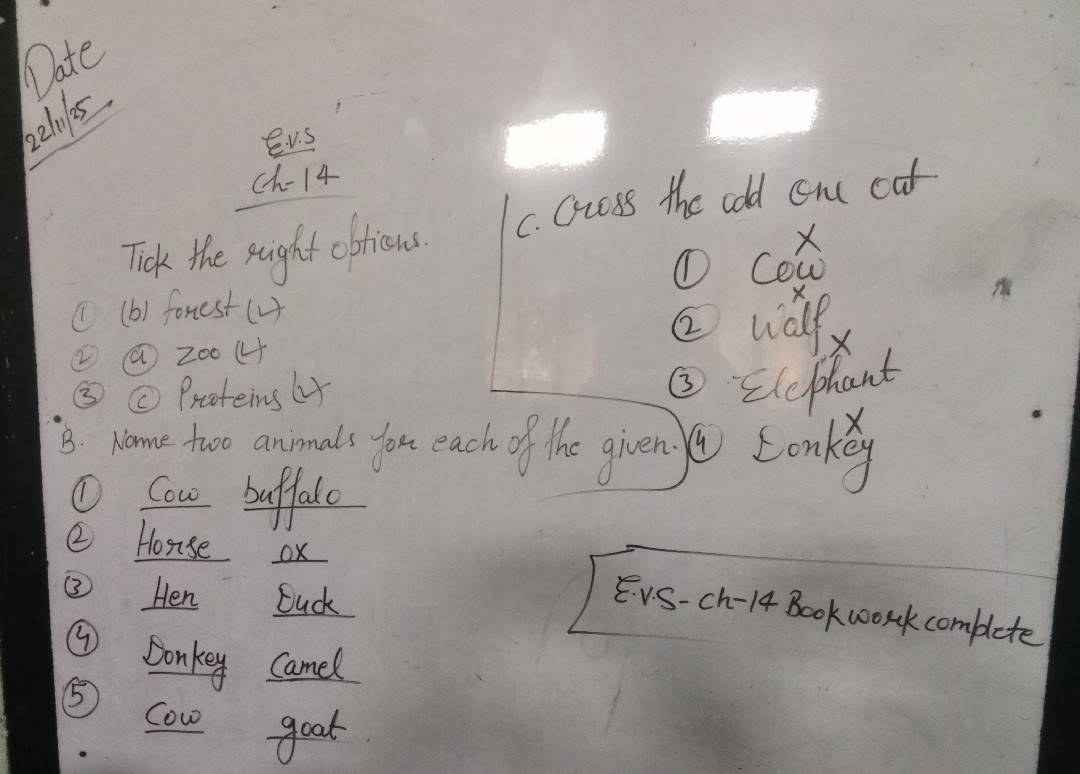 Date
22/11/25
E.V.S
Ch-14
Tick the right options.
① (b) forest (✓)
② ⓐ zoo (✓)
③ ⓒ Proteins (✓)
B. Name two animals for each of the given.
① Cow buffalo
② Horse ox
③ Hen Duck
④ Donkey Camel
⑤ Cow goat
C. Cross the odd one out
① Cow X
② Walf X
③ Elephant X
④ Donkey X
E.V.S - Ch-14 Book work complete